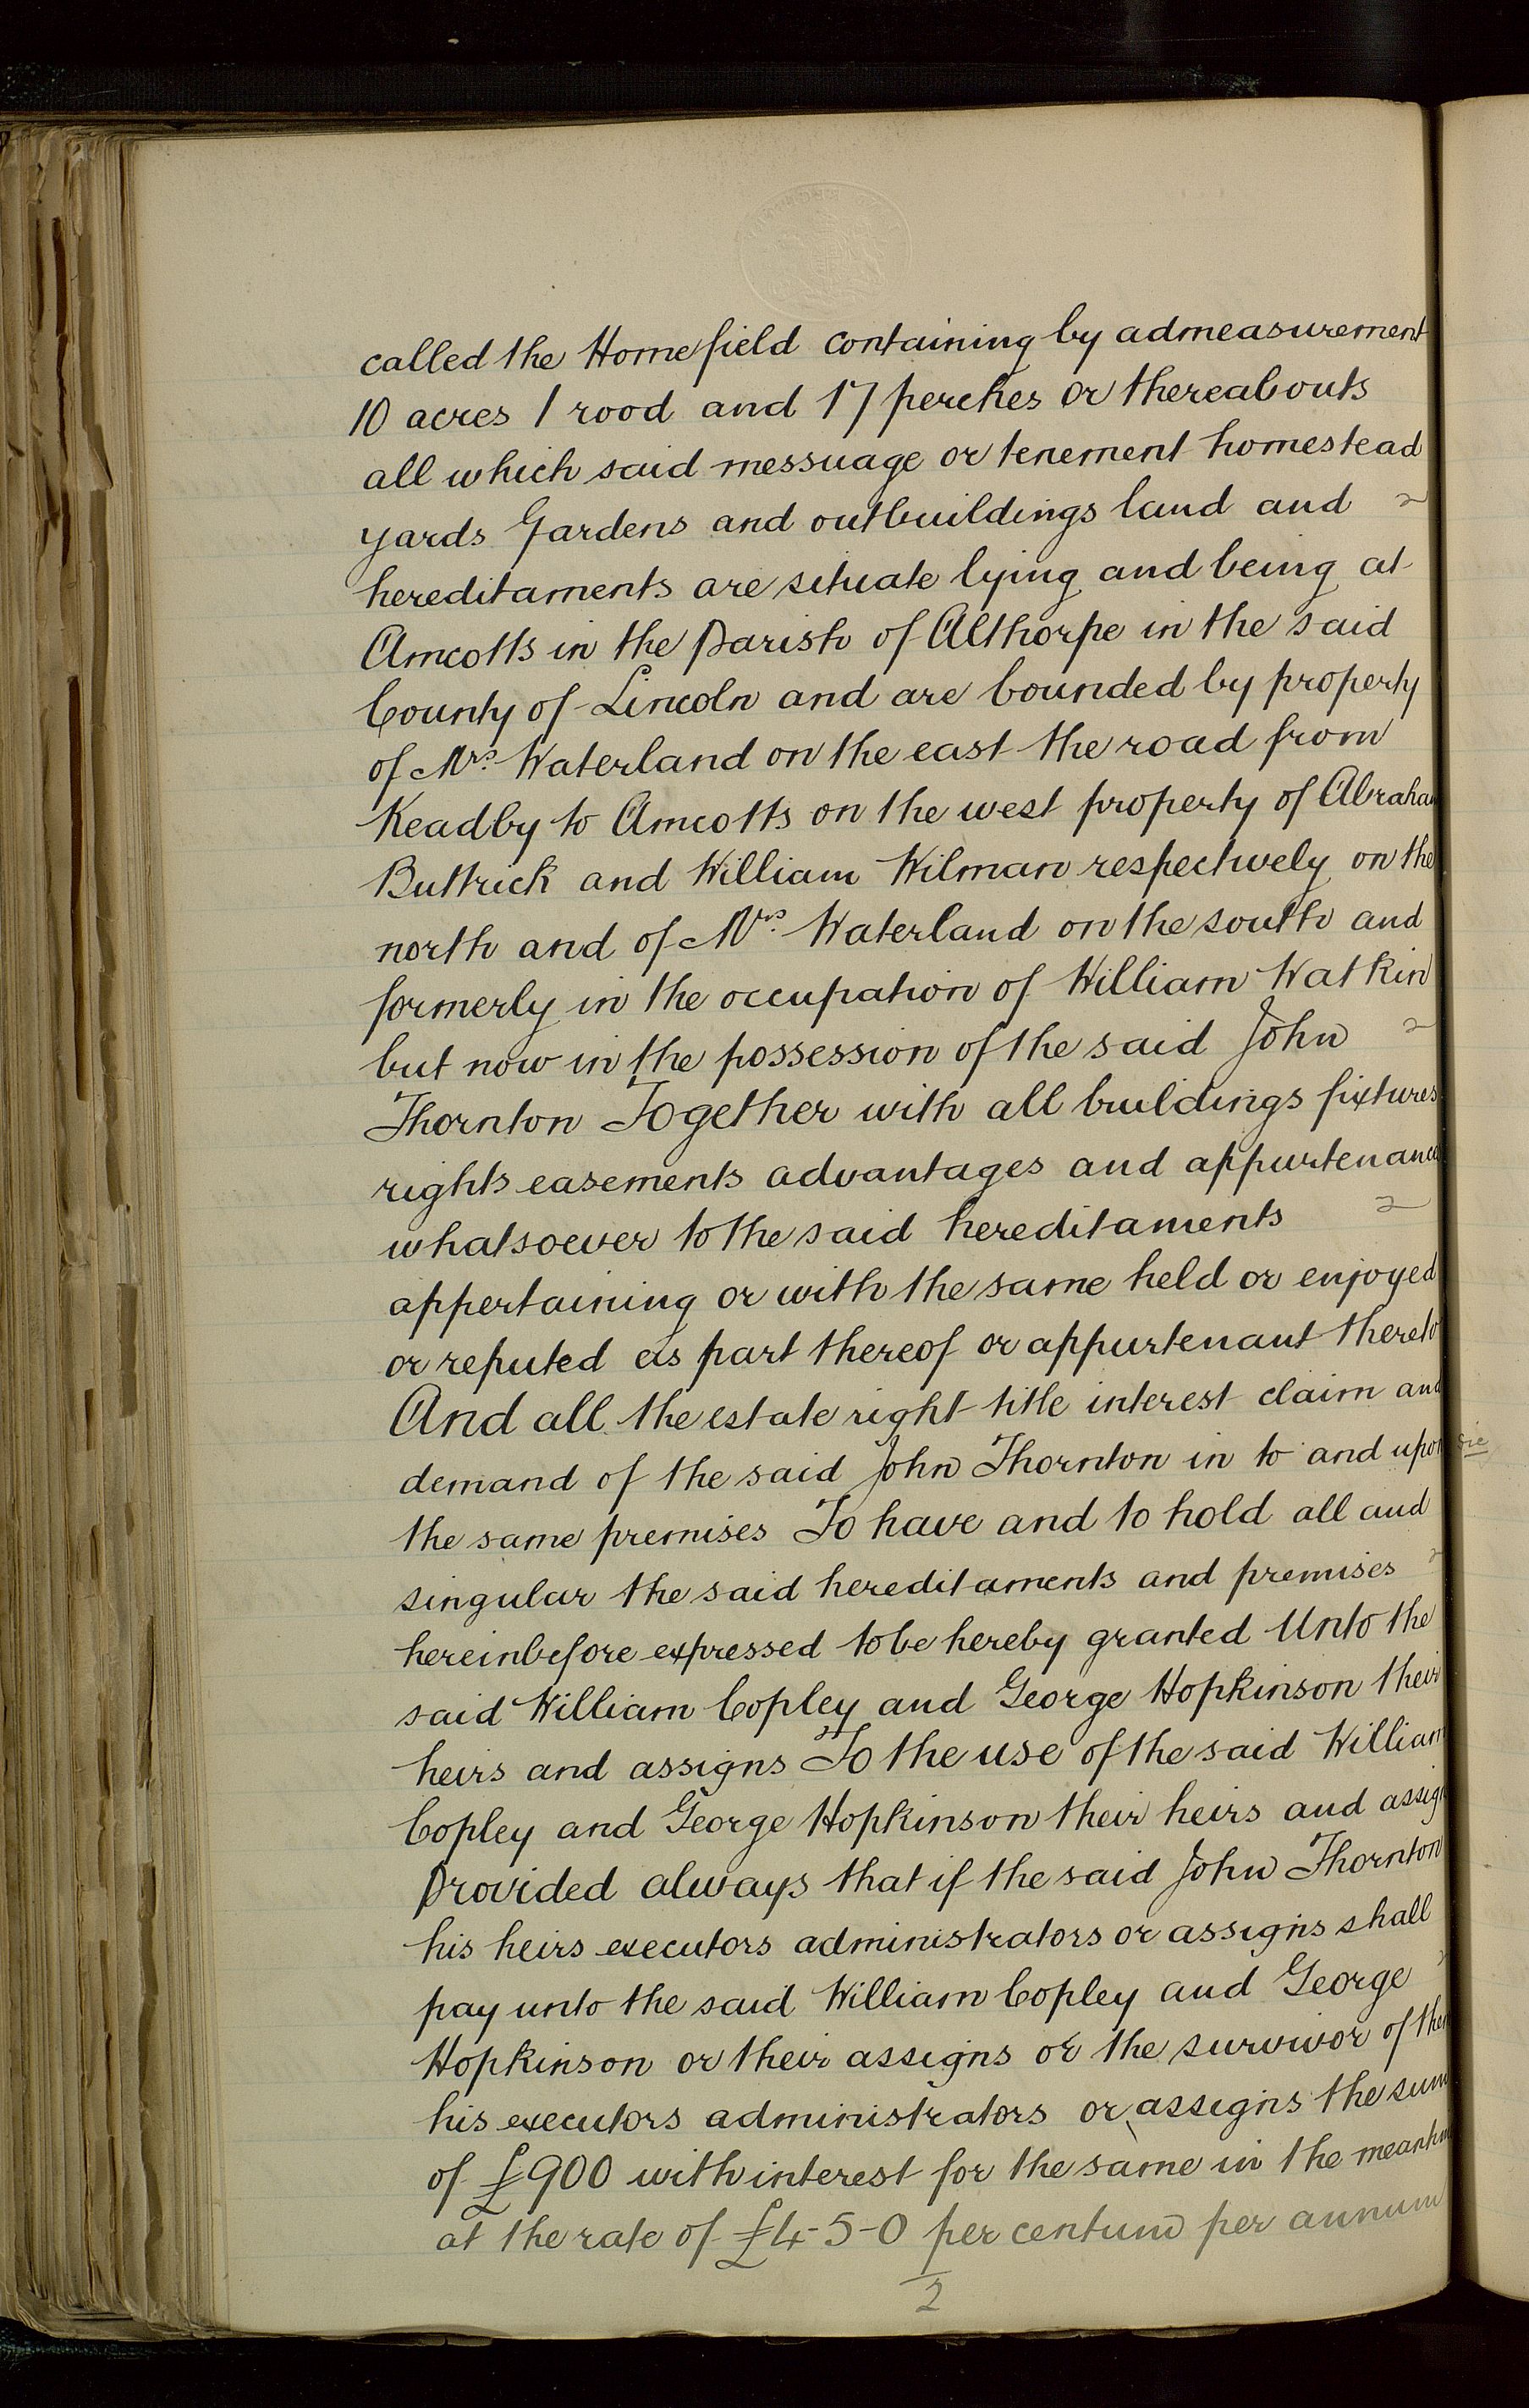 called the Homefield containing by admeasurement
10 acres 1 rood and 17 perches or thereabouts
all which said messuage or tenement homestead
yards Gardens and outbuildings land and
hereditaments are situate lying and being at
Amcotts in the Parish of Althorpe in the said
County of Lincoln and are bounded by property
of Mrs. Waterland on the east the road from
Keadby to Amcotts on the west property of Abraha
Buttrick and William Wilman respectively on the
north and of Mrs. Waterland on the south and
formerly in the occupation of William Watkin
but now in the possession of the said John
Thornton Together with all buildings fixtures
rights easements advantages and appurtenance
whatsoever to the said hereditaments
appertaining or with the same held or enjoyed
or reputed as part thereof or appurtenant thereto
And all the estate right title interest claim and
demand of the said John Thornton in to and upon
the same premises To have and to hold all and
singular the said hereditaments and premises
hereinbefore expressed to be hereby granted Unto the
said William Copley and George Hopkinson their
heirs and assigns To the use of the said William
Copley and George Hopkinson their heirs and assign
Provided always that if the said John Thornton
his heirs executors administrators or assigns shall
pay unto the said William Copley and George
Hopkinson or their assigns or the survivor of them
his executors administrators or assigns the sum
of £900 with interest for the same in the meantim
at the rate of £4-5-0 per centum per annum
2